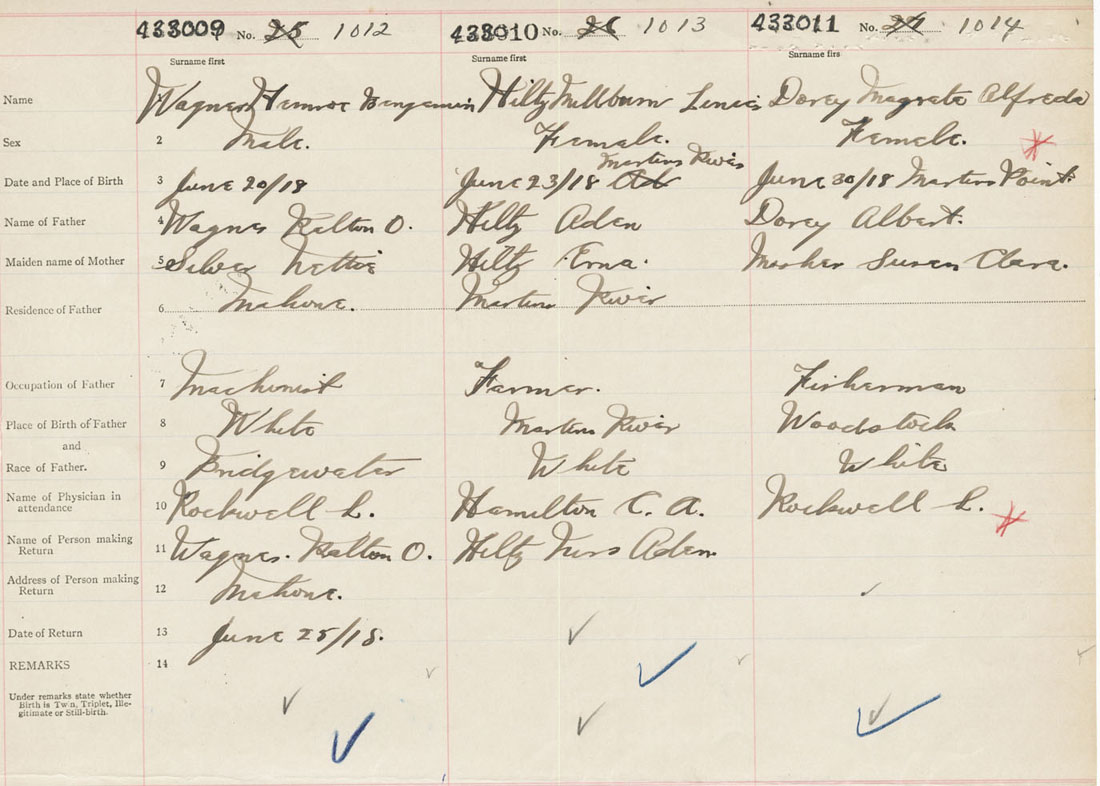 433009 No. 25 1012 433010 No. 26 1013 433011 No. 27 1014
Surname first Surname first Surname firs
Name Wagner Benjamin Hiltz Millburn Dorey Magrate Alfreda
Sex 2 Male. Female. Female.
Martins River
Date and Place of Birth 3 June 20/18 June 23/18 June 30/18 Martins Point.
Name of Father 4 Wagner Ralton O. Hiltz Aden Dorey Albert.
Maiden name of Mother 5 Silver Nettie Hiltz Erna. Susen Clara.
Residence of Father 6 Mahone. Martins River
Occupation of Father 7 Machonist Farmer. Fisherman
Place of Birth of Father 8 White Martins River Woodstock
and
Race of Father. 9 Bridgewater White White
Name of Physician in
attendance 10 Rockwell L. Hamilton C. A. Rockwell L.
Name of Person making
Return 11 Wagner. Ralton O. Hiltz Mrs Aden
Address of Person making
Return 12 Mahone.
Date of Return 13 June 25/18.
REMARKS 14
Under remarks state whether
Birth is Twin, Triplet, Ille-
gitimate or Still-birth.